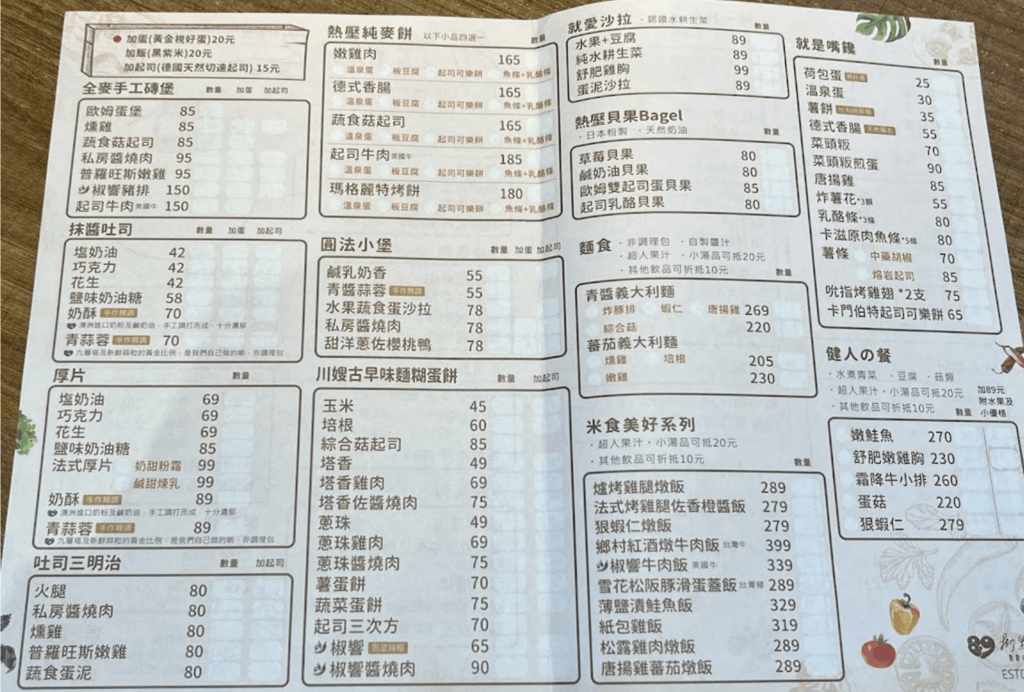 加蛋(黃金視好蛋)20元
加飯(黑紫米)20元
加起司(德國天然切達起司) 15元
全麥手工磚堡 數量 加蛋 加起司
歐姆蛋堡 85
燻雞 85
蔬食菇起司 85
私房醬燒肉 95
普羅旺斯嫩雞 95
椒響豬排 150
起司牛肉 美國牛 150
抹醬吐司 數量 加蛋 加起司
塩奶油 42
巧克力 42
花生 42
鹽味奶油糖 58
奶酥 手作雅調 70
澳洲進口奶粉及鹹奶油,手工調打而成,十分濃郁
青蒜蓉 手作雅調 70
九層塔及新鮮蒜粒的黃金比例,是我們自己做的喲,非調理包
厚片 數量
塩奶油 69
巧克力 69
花生 69
鹽味奶油糖 85
法式厚片 奶甜粉霜 99
鹹甜煉乳 99
奶酥 手作雅調 89
澳洲進口奶粉及鹹奶油,手工調打而成,十分濃郁
青蒜蓉 手作雅調 89
九層塔及新鮮蒜粒的黃金比例,是我們自己做的喲,非調理包
吐司三明治 數量 加起司
火腿 80
私房醬燒肉 80
燻雞 80
普羅旺斯嫩雞 80
蔬食蛋泥 80
熱壓純麥餅 以下小品四選一 數量
嫩雞肉 165
溫泉蛋 板豆腐 起司可樂餅 魚條+乳酪條
德式香腸 165
溫泉蛋 板豆腐 起司可樂餅 魚條+乳酪條
蔬食菇起司 165
溫泉蛋 板豆腐 起司可樂餅 魚條+乳酪條
起司牛肉 美國牛 185
溫泉蛋 板豆腐 起司可樂餅 魚條+乳酪條
瑪格麗特烤餅 180
溫泉蛋 板豆腐 起司可樂餅 魚條+乳酪條
圓法小堡 數量 加蛋 加起司
鹹乳奶香 55
青醬蒜蓉 手作雅調 55
水果蔬食蛋沙拉 78
私房醬燒肉 78
甜洋蔥佐櫻桃鴨 78
川嫂古早味麵糊蛋餅 數量 加起司
玉米 45
培根 60
綜合菇起司 85
塔香 49
塔香雞肉 69
塔香佐醬燒肉 75
蔥珠 49
蔥珠雞肉 69
蔥珠醬燒肉 75
薯蛋餅 70
蔬菜蛋餅 75
起司三次方 70
椒響 65
椒響醬燒肉 90
就愛沙拉 · 認證水耕生菜 數量
水果+豆腐 89
純水耕生菜 89
舒肥雞胸 99
蛋泥沙拉 89
熱壓貝果Bagel
· 日本粉製 · 天然奶油 數量
草莓貝果 80
鹹奶油貝果 80
歐姆雙起司蛋貝果 85
起司乳酪貝果 80
麵食 · 非調理包 · 自製醬汁
· 超人果汁 · 小湯品可抵20元
· 其他飲品可折抵10元 數量
青醬義大利麵
炸豚排 蝦仁 唐揚雞 269
綜合菇 220
蕃茄義大利麵
燻雞 培根 205
嫩雞 230
米食美好系列
· 超人果汁 · 小湯品可抵20元
· 其他飲品可折抵10元 數量
爐烤雞腿燉飯 289
法式烤雞腿佐香橙醬飯 279
狠蝦仁燉飯 279
鄉村紅酒燉牛肉飯 台灣牛 399
椒響牛肉飯 美國牛 339
雪花松阪豚滑蛋蓋飯 台灣豬 289
薄鹽漬鮭魚飯 329
紙包雞飯 319
松露雞肉燉飯 289
唐揚雞蕃茄燉飯 289
就是嘴饞
數量
荷包蛋 25
溫泉蛋 30
薯餅 35
德式香腸 55
菜頭粄 70
菜頭粄煎蛋 90
唐揚雞 85
炸薯花 *3顆 55
乳酪條 *3條 80
卡滋原肉魚條 *5條 80
薯條 中藥胡椒 70
熔岩起司 85
吮指烤雞翅 *2支 75
卡門伯特起司可樂餅 65
健人の餐
· 水煮青菜 · 豆腐 · 菇類
· 超人果汁 · 小湯品可抵20元
· 其他飲品可折抵10元 數量
加89元
附水果及
小優格
嫩鮭魚 270
舒肥嫩雞胸 230
霜降牛小排 260
蛋菇 220
狠蝦仁 279
89